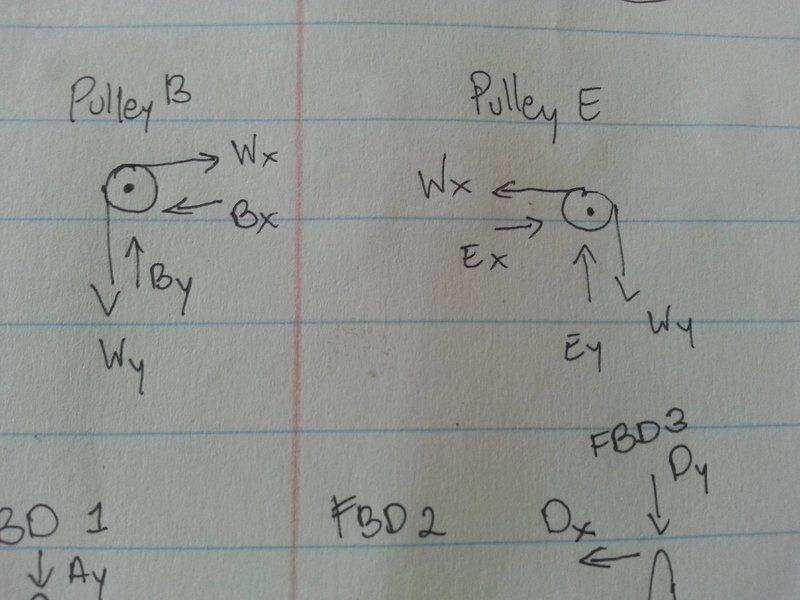 Pulley B
Pulley E
Wx
Bx
By
Wy
Wx
Ex
Ey
Wy
BD 1
Ay
FBD 2
FBD 3
Dy
Dx